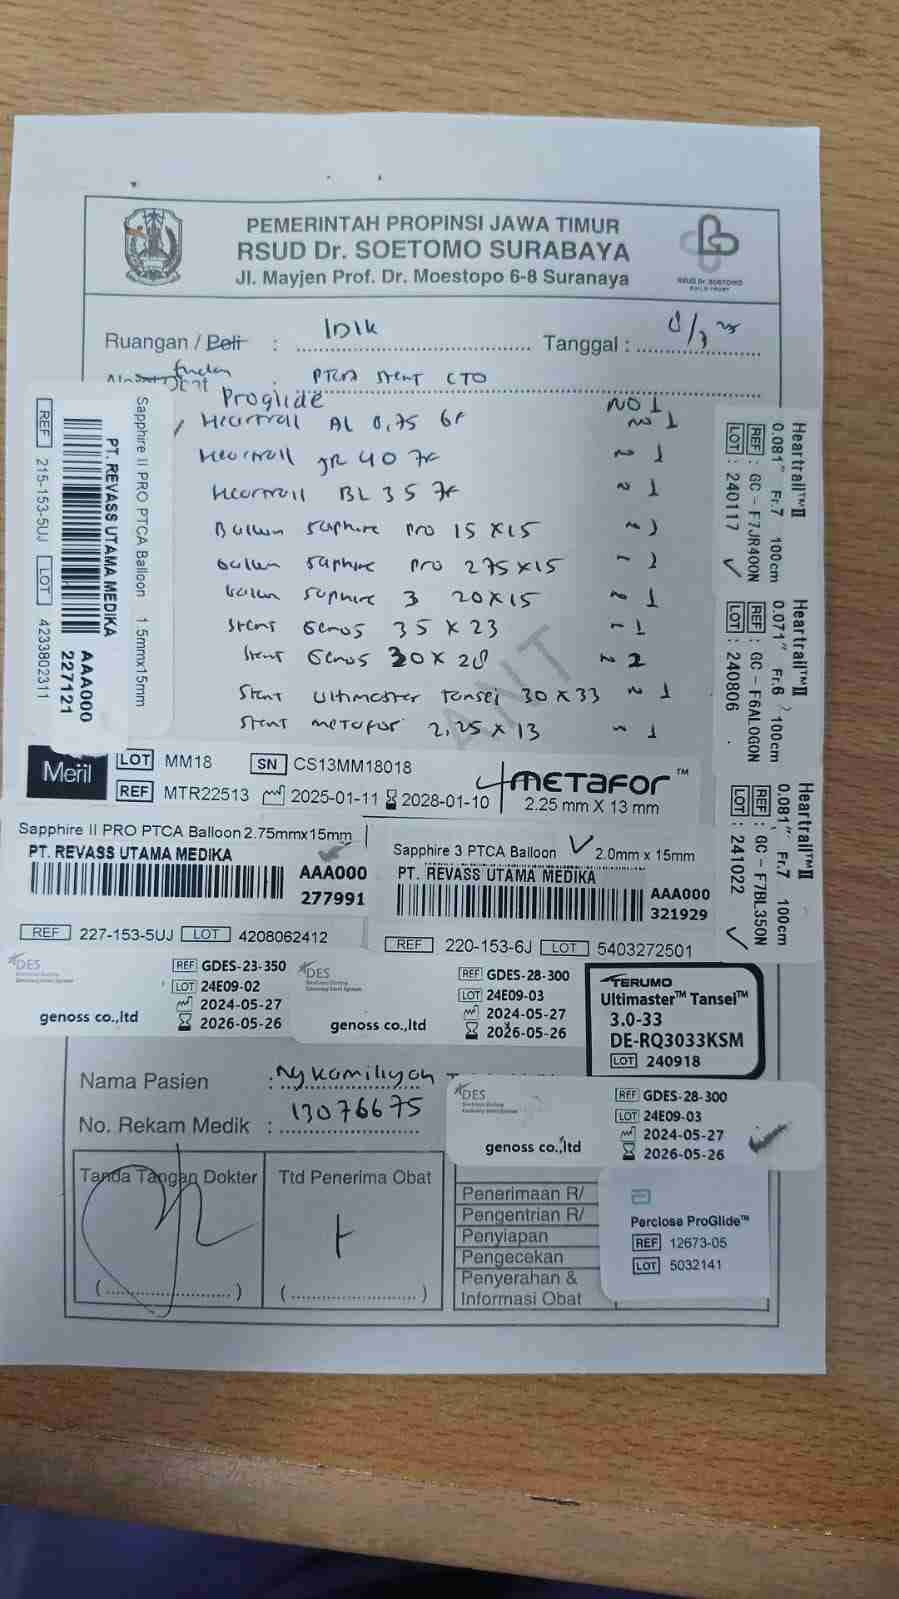 PEMERINTAH PROPINSI JAWA TIMUR
RSUD Dr. SOETOMO SURABAYA
Jl. Mayjen Prof. Dr. Moestopo 6-8 Suranaya
RSUD Dr. SOETOMO
Ruangan / Poli : IDIK Tanggal :
PTCA Stent CTO
Proglide NO 1
Heartrail AL 0,75 6F ~ 1
Heartrail JR 40 7F ~ 1
Heartrail BL 35 7F ~ 1
Ballon Saphire Pro 15 x 15
balon saphire pro 275 x 15
balon saphire 3 20 x 15 ~ 1
Stent Genos 35 x 23 - 1
Stent Genos 30 x 28 ~ 2
Stent Ultimaster Tansei 30 x 33 ~ 1
Stent metafor 2,25 x 13 ~ 1
ANT
Sapphire II PRO PTCA Balloon 1.5mmx15mm
PT. REVASS UTAMA MEDIKA
AAA000
227121
REF 215-153-5UJ LOT 4233802311
Heartrail™II
0.081" Fr.7 100cm
REF : GC-F7JR400N
LOT : 240117
Heartrail™II
0.071" Fr.6 100cm
REF : GC-F6AL0G0N
LOT : 240806
Heartrail™II
0.081" Fr.7 100cm
REF : GC-F7BL350N
LOT : 241022
Meril
LOT MM18 SN CS13MM18018
REF MTR22513 2025-01-11 2028-01-10
METAFOR™
2.25 mm X 13 mm
Sapphire II PRO PTCA Balloon 2.75mmx15mm
PT. REVASS UTAMA MEDIKA
AAA000
277991
REF 227-153-5UJ LOT 4208062412
Sapphire 3 PTCA Balloon 2.0mm x 15mm
PT. REVASS UTAMA MEDIKA
AAA000
321929
REF 220-153-6J LOT 5403272501
DES
genoss co.,ltd
REF GDES-23-350
LOT 24E09-02
2024-05-27
2026-05-26
DES
genoss co.,ltd
REF GDES-28-300
LOT 24E09-03
2024-05-27
2026-05-26
TERUMO
Ultimaster™ Tansei™
3.0-33
DE-RQ3033KSM
LOT 240918
Nama Pasien : Ny Kamiliyah
No. Rekam Medik : 13076675
DES
genoss co.,ltd
REF GDES-28-300
LOT 24E09-03
2024-05-27
2026-05-26
Tanda Tangan Dokter
Ttd Penerima Obat
Penerimaan R/
Pengentrian R/
Penyiapan
Pengecekan
Penyerahan &
Informasi Obat
Perclose ProGlide™
REF 12673-05
LOT 5032141